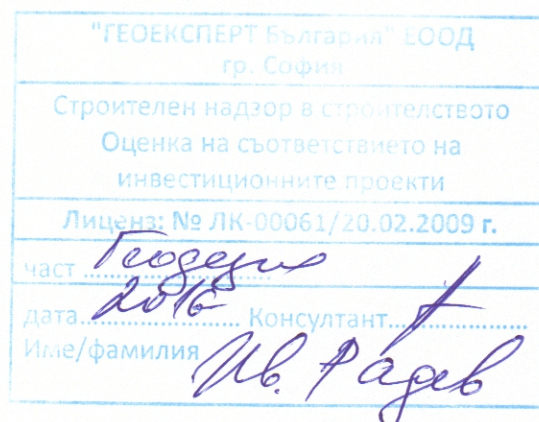 "ГЕОЕКСПЕРТ България" ЕООД
гр. София
Строителен надзор в строителството
Оценка на съответствието на
инвестиционните проекти
Лиценз: № ЛК-00061/20.02.2009 г.
част Геодезия
дата 2016 Консултант
Име/фамилия Ив. Радев